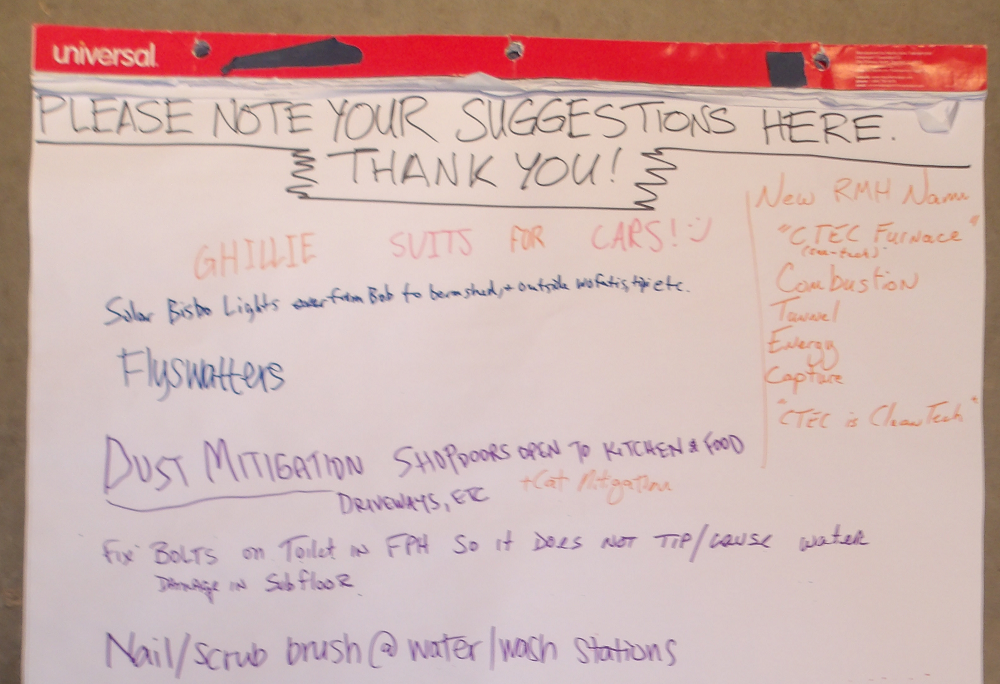 universal
PLEASE NOTE YOUR SUGGESTIONS HERE.
THANK YOU!
GHILLIE SUITS FOR CARS! :)
Solar Bistro Lights from Bob to bermshed, + outside wofatis, tipi etc.
Flyswatters
DUST MITIGATION SHOP DOORS OPEN TO KITCHEN & FOOD
DRIVEWAYS, ETC
+Cat Mitgation
Fix BOLTS on Toilet in FPH So it DOES NOT TIP/CAUSE water
DAMAGE IN SubflooR
Nail/scrub brush @ water/wash stations
New RMH Name
"CTEC Furnace"
Combustion
Tunnel
Energy
Capture
"CTEC is CleanTech"